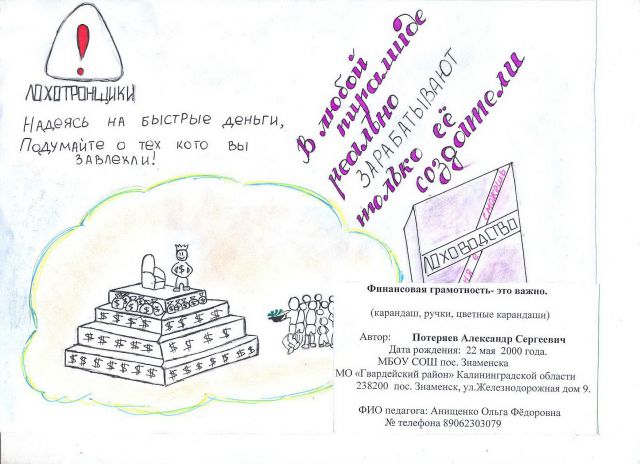 ЛОХОТРОНЩИКИ
НАДЕЯСЬ НА БЫСТРЫЕ ДЕНЬГИ,
ПОДУМАЙТЕ О ТЕХ КОГО ВЫ
ЗАВЛЕКЛИ!
В любой
пирамиде
реально
ЗАРАБАТЫВАЮТ
только её
создатели
ЛОХОВОДСТВО
Финансовая грамотность- это важно.
(карандаш, ручки, цветные карандаши)
Автор: Потеряев Александр Сергеевич
Дата рождения: 22 мая 2000 года.
МБОУ СОШ пос. Знаменска
МО «Гвардейский район» Калининградской области
238200 пос. Знаменск, ул.Железнодорожная дом 9.
ФИО педагога: Анищенко Ольга Фёдоровна
№ телефона 89062303079